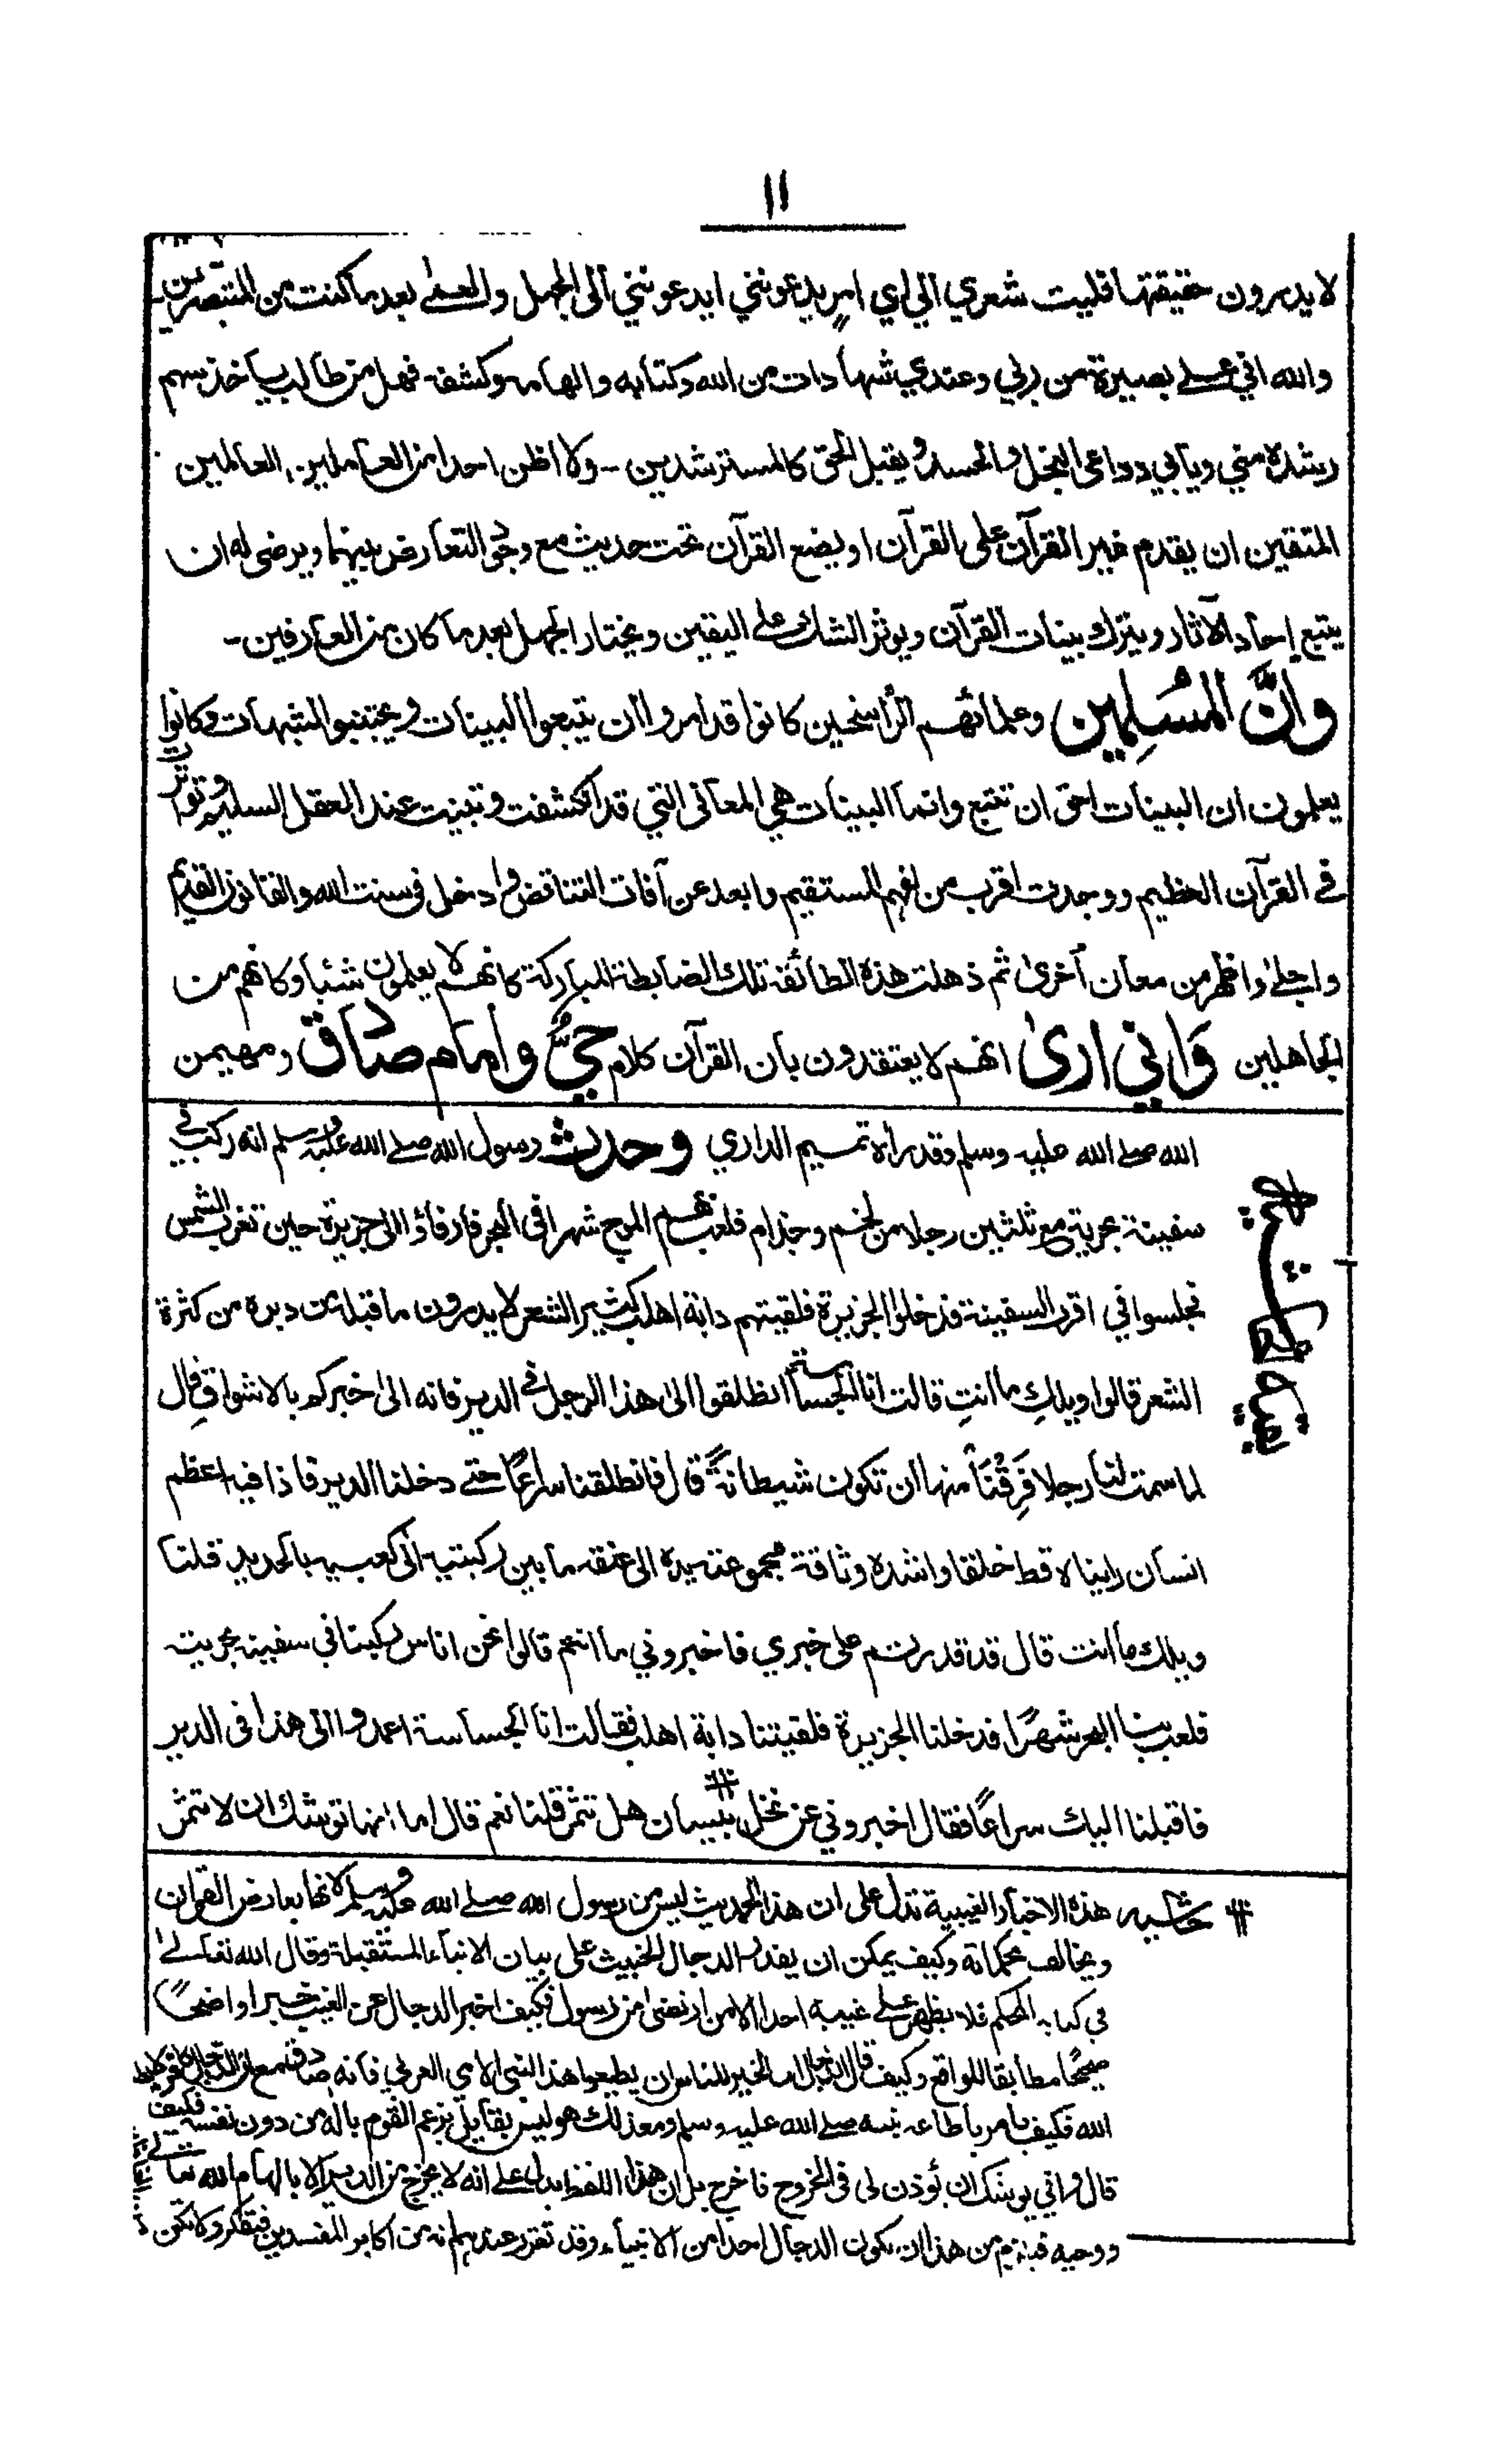 ۱۱
لا يدرون حقيقتها فليت شعري الى اي امرٍ يدعونني ايدعونني الى الجهل والعمى بعد ما كنت من المتبصرين
والله اني على بصيرة من ربي وعندي شهادات من الله وكتابه والهامه وكشفه فهل من طالب ياخذ سهم
رشده مني ويأبى دواعى البخل والحسد ويقبل الحق كالمسترشدين - ولا اظن احدا من العاملين العالمين
المتقين ان يقدم غير القرآن على القرآن او يضع القرآن تحت حديث مع وجود التعارض بينهما ويرضى له ان
يتبع احاد الآثار ويترك بينات القرآن ويوثر الشك على اليقين ويختار الجهل بعد ما كان من العارفين -
وانَّ المُسَلِمين وعلمائهم الراسخين كانوا قد امروا ان يتبعوا البينات ويجتنبوا الشبهات وكانوا
يعلمون ان البينات احق ان تتبع وانما البينات هي المعانى التي قد انكشفت وتبينت عند العقل السليم وتواترت
في القرآن العظيم ووجدت اقرب من الفهم المستقيم وابعد عن آفات التناقض وادخل فى سنت الله والقانون القديم
واجلى واظهر من معان أخرىٰ ثم ذهلت هذه الطائفة تلك الضابطة المباركة كانهم لا يعلمون شيئا وكانهم من
الجاهلين وَاني ارىٰ انهم لا يعتقدون بان القرآن كلام حيٌّ وامام صادق ومهيمن
الله صلے الله عليه وسلم وقد رأه تميم الداري وحدث رسول الله صلے الله عليه وسلم انه ركب في
سفينة بحرية مع ثلثين رجلا من لخم وجذام فلعب بهم الموج شهرا فى البحر فارفاؤا الى جزيرة حين تغرب الشمس
فجلسوا في اقرب السفينة فدخلوا الجزيرة فلقيتهم دابة اهلب كثير الشعر لا يدرون ما قبله من دبره من كثرة
الشعر قالوا ويلكِ ما انتِ قالت انا الجساسة انطلقوا الى هذا الرجل في الدير فانه الى خبركم بالاشواق قال
لما سمت لنا رجلا فَرِقْنَا منها ان تكون شيطانةً قال فانطلقنا سراعًا حتے دخلنا الدير فاذا فيه اعظم
انسان راينا لا قط خلقا واشده وثاقة مجموعة يده الى عنقه ما بين ركبتيه الى كعبيه بالحديد قلنا
ويلك ما انت قال قد قدرتم على خبري فاخبروني ما انتم قالوا نحن اناس ركبنا في سفينة بحرية
فلعب بنا البحر شهرًا فدخلنا الجزيرة فلقيتنا دابة اهلب فقالت انا الجساسة اعمدوا الى هذا فى الدير
فاقبلنا اليك سراعًا فقال اخبروني عن نخل بيسان هل تثمر قلنا نعم قال اما انها توشك ان لا تثمر
حاشيه هذه الاخبار الغيبية تدل على ان هذا الحديث ليس من رسول الله صلے الله عليه وسلم لانها يعارض القران
ويخالف محكماته وكيف يمكن ان يقدر الدجال الخبيث على بيان الانباء المستقبلة وقال الله تعالےٰ
في كتابه المحكم فلا يظهر على غيبه احدا الا من ارتضى من رسول فكيف اخبر الدجال عن الغيب خبرا واضحًا
صحيحًا مطابقا للواقع وكيف قال الدجال اما الخير للناس ان يطيعوا هذا النبى الامى العربى فانه صادق مع ان الدجال كافر
الله فكيف يامر باطاعة نبيه صلے الله عليه وسلم ومع ذلك هو ليس بقايل بزعم القوم باله من دون نفسه فكيف
قال وانى يوشك ان يؤذن لى فى الخروج فاخرج بل ان هذا اللفظ يدل على انه لا يخرج من الدير الا بالهام الله تعالے
ووحيه فيلزم من هذا ان يكون الدجال احدا من الانبياء وقد تقرر عندهم انه من اكابر المفسدين فتفكر ولا تكن